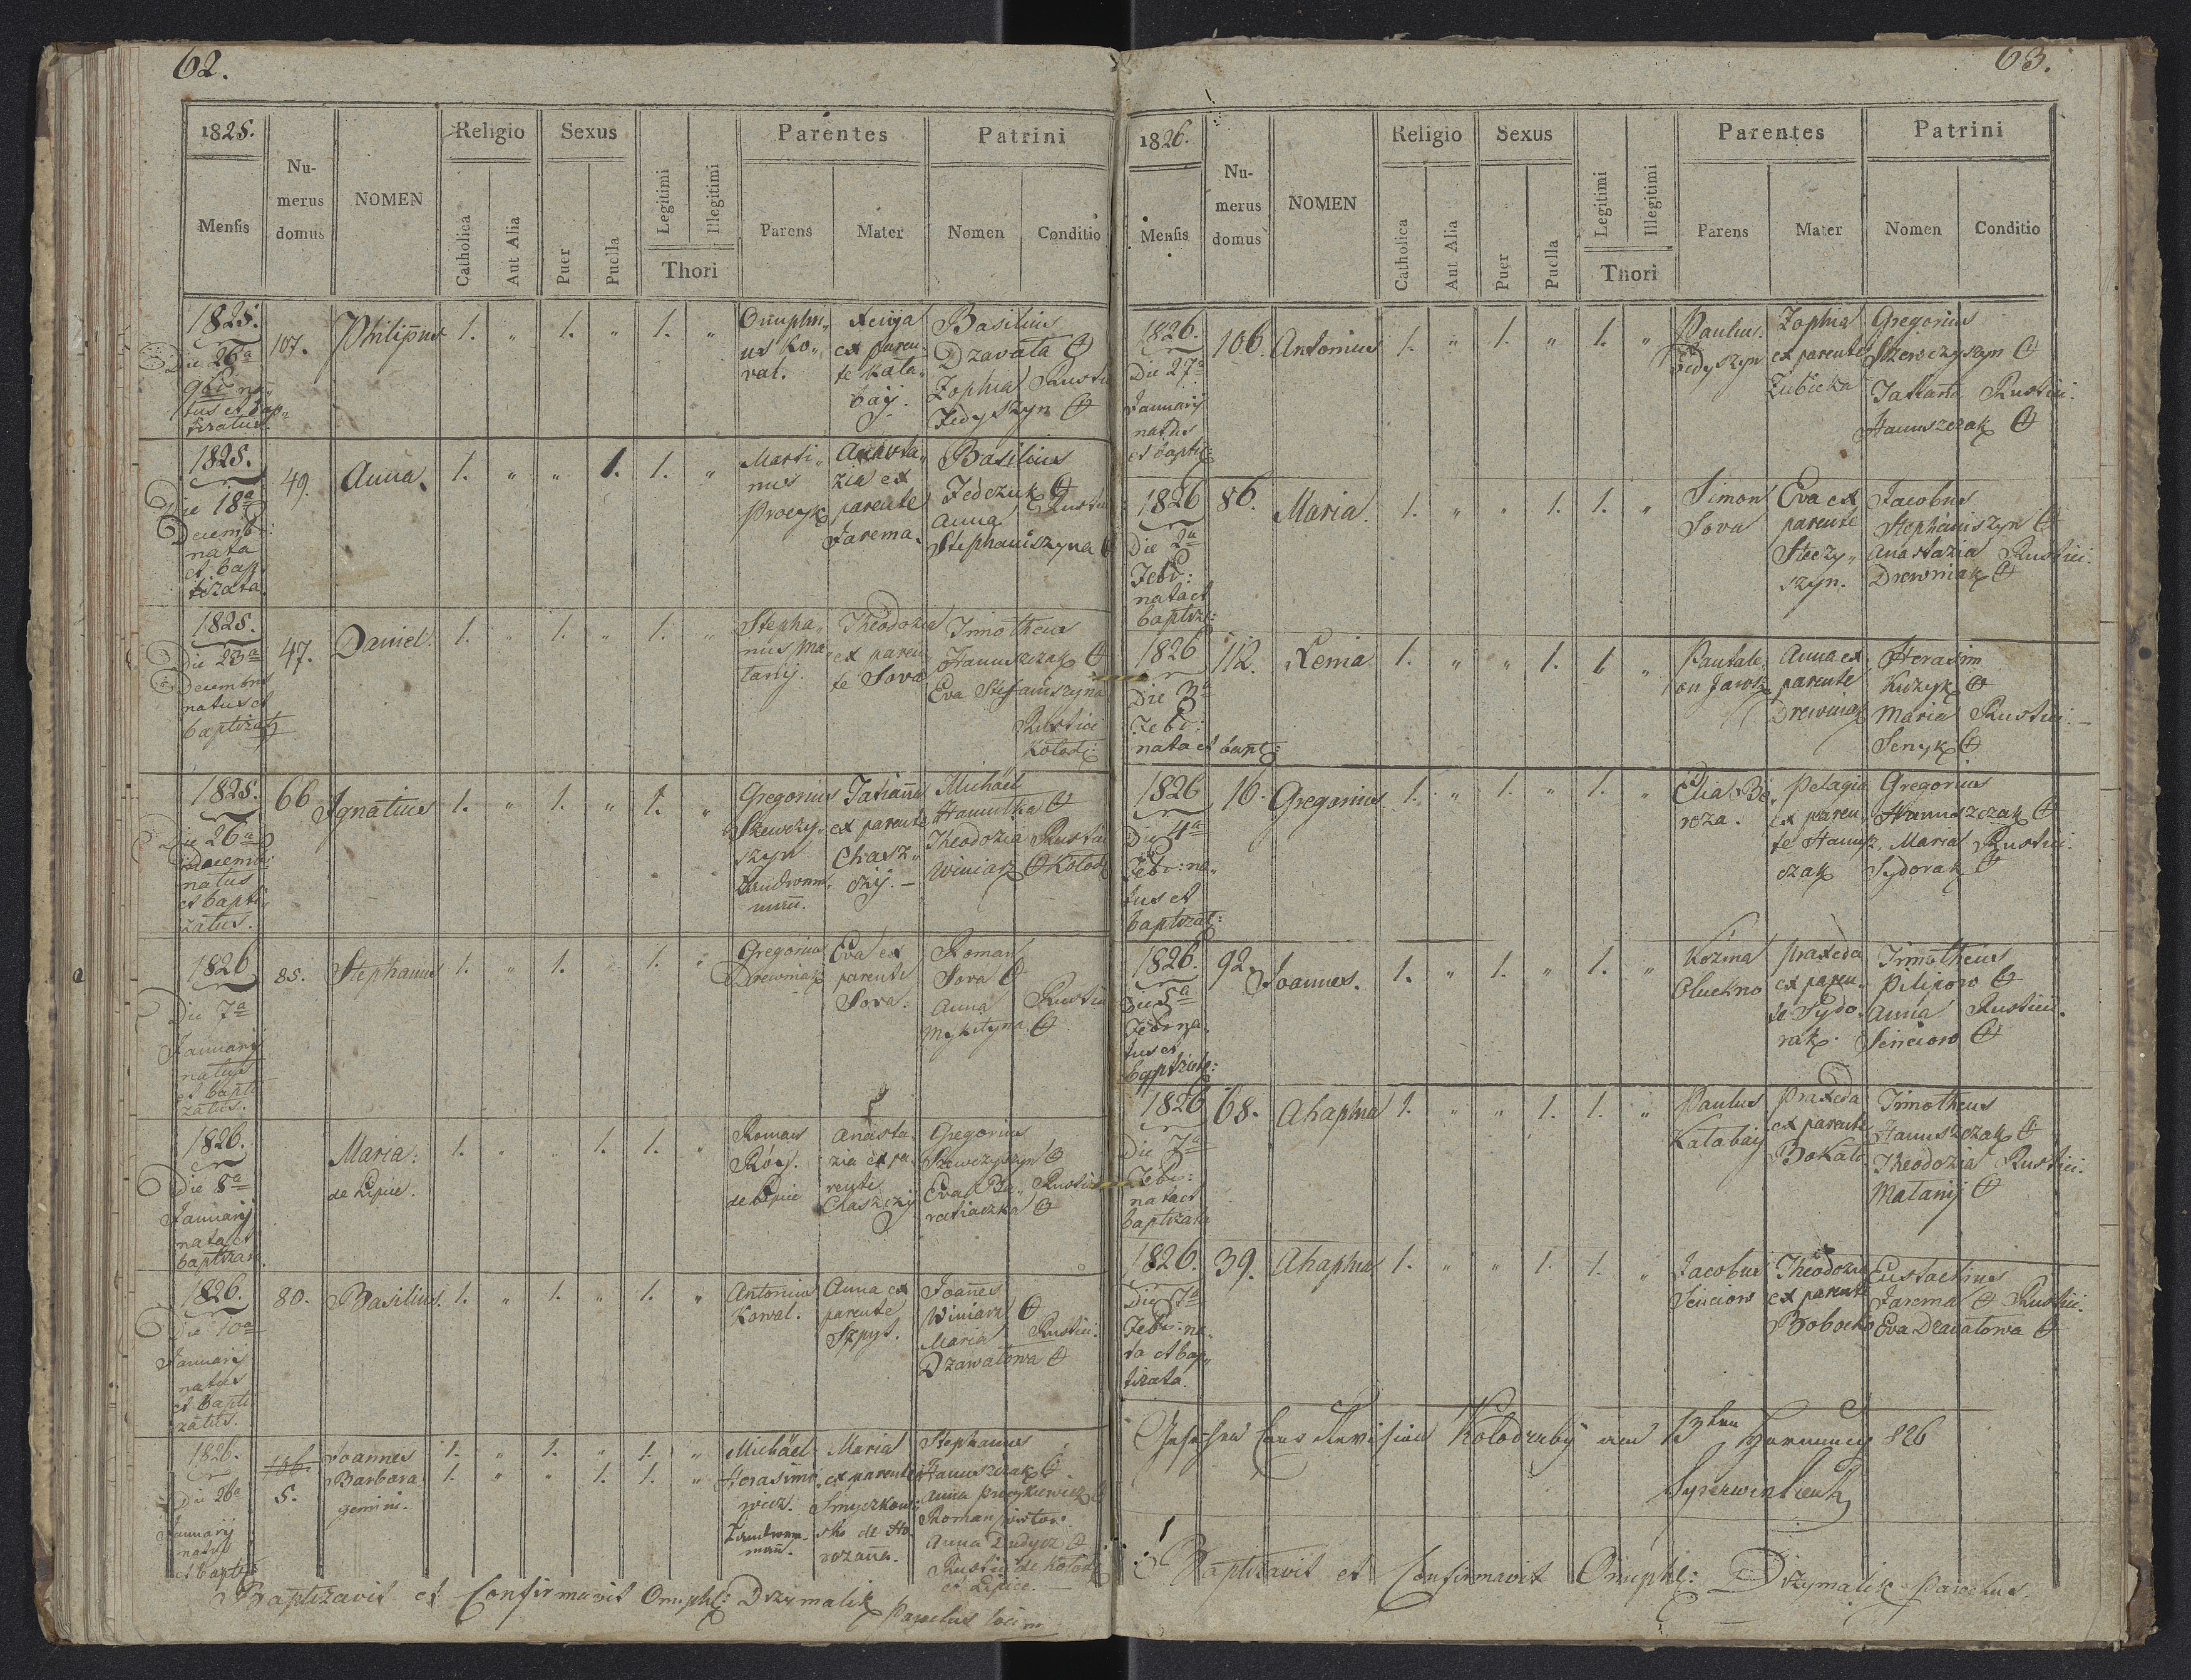 62.
1825.
Mensis
Nu-
merus
domus
NOMEN
Religio
Catholica
Aut Alia
Sexus
Puer
Puella
Legitimi
Illegitimi
Thori
Parentes
Parens
Mater
Patrini
Nomen
Conditio
1825.
Die 26a
9br na
tus et bap„
tizatus
107.
Philipus
1. „ 1. „ 1. „
Onuphri„
us Ko„
val.
Xenja
ex paren„
te Kata„
baÿ.
Basilius
Dzavata
Zophia Rusti
Fedyszyn
1825.
Die 18a
Decemb:
nata
et bap
tizata
49.
Anna
1. „ „ 1. 1. „
Marti„
nus
Procyk
Anasta„
zia ex
parente
Jarema.
Basilius
Fedczuk
Anna Rusti
Stephaniszyna
1825.
Die 23a
Decembris
natus et
baptizat
47.
Daniel.
1. „ 1. „ 1. „
Stepha„
nus Ma„
tanij.
Theodozia
ex paren„
te Sova
Timotheus
Hanuszczak
Eva Stefaniszyna
Rustici
Kolod:
1825.
Die 26a
Decemb:
natus
et bapti
zatus.
66
Ignatius
1. „ 1. „ 1. „
Gregorius
Szewczy„
szyn
Tatianna
ex parente
Chasz„
czij. –
Michael
Hanutka
Theodozia Rustici
Winiarz Kolod
1826
Die 7a
Januarij
natus
et bapti
zatus.
85.
Stephanus
1. „ 1. „ 1. „
Gregorius
Drewniak
Eva ex
parente
Sova.
Roman
Sova
Anna Rustici
Mykityna
1826.
Die 8a
Januarij
nata et
baptizata.
Maria.
de Lipice.
1. „ „ 1. 1. „
Roman
de Lipice
Anasta„
zia ex pa„
rente
Chaszczij
Gregorius
Szewczyszyn
Eva Ba„ Rustici
1826.
Die 10a
Januarij
natus
et bapti
zatus.
80.
Basilius.
1. „ 1. „ 1. „
Antonius
Kowal.
Anna ex
parente
Szpyt.
Joannes
Winiarz
Maria Rustici.
Dzawatowa
1826.
Die 26a
Januarij
nati
et bapt
5.
Joannes
Barbara
gemini.
1. „ 1. „ 1. „
1. „ „ 1. 1. „
Michael
Herasimo„
wicz.
Maria
ex parente
Stephanus
Hanuszczak
Roman
Anna Dudycz
Rustici de Kolod
et Lipice.
Baptizavit et Confirmavit Onuph: Drzymalik Parochus loci
63.
1826.
Mensis
Nu-
merus
domus
NOMEN
Religio
Catholica
Aut Alia
Sexus
Puer
Puella
Legitimi
Illegitimi
Thori
Parentes
Parens
Mater
Patrini
Nomen
Conditio
1826.
Die 27a
Januarij
natus
et baptiz
106.
Antonius
1. „ 1. „ 1. „
Paulus
Fedyszyn
Zophia
ex parente
Zubicka
Gregorius
Szewczyszyn
Tatiana Rustici.
Hanuszczak
1826
Die 2a
Febr:
nata et
baptiz:
86.
Maria
1. „ „ 1. 1. „
Simon
Sova
Eva ex
parente
Steczy„
szyn.
Jacobus
Stephaniszyn
Anastazia Rustici.
Drewniak
1826
Die 3a
Febr:
nata et bapt:
112.
Xenia
1. „ „ 1. 1 „
Pantale„
on
Anna ex
parente
Drewniak
Herasim
Kuzyk
Maria Rustici –
Senyk
1826
Die 4a
Febr: na„
tus et
baptizat:
16.
Gregorius
1. „ 1. „ 1. „
Elias Be„
reza.
Pelagia
ex paren„
te Hanusz„
czak
Gregorius
Hanuszczak
Maria Rustici.
Sydorak
1826.
Die 5a
Febr na„
tus et
baptizat:
92.
Joannes.
1. „ 1. „ 1. „
Kozma
Oluchno
Praxeda
ex paren„
te Sydo„
rak.
Timotheus
Pilipow
Anna Rustici.
Senciow
1826
Die 7a
Febr:
nata et
baptizata
68.
Ahaphia
1. „ „ 1. 1. „
Paulus
Katabaij
Praxeda
ex parente
Bokalo
Timotheus
Hanuszczak
Theodozia Rustici.
Matanij
1826.
Die 7a
Febr: na„
ta et bap„
tizata.
39.
Ahaphia
1. „ „ 1. 1. „
Jacobus
Senciow
Theodozia
ex parente
Bobocko
Eustachius
Jarema Rustici.
Eva Dzavatowa
Revision Kolodruby 13ten Hornung 826
Baptizavit et Confirmavit Onuph: Drzymalik Parochus.